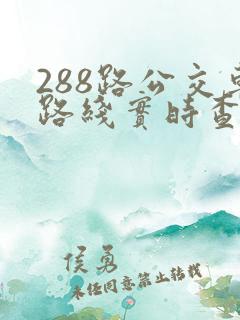 288路公交
路线實時查
侯勇
未经同意禁止转载